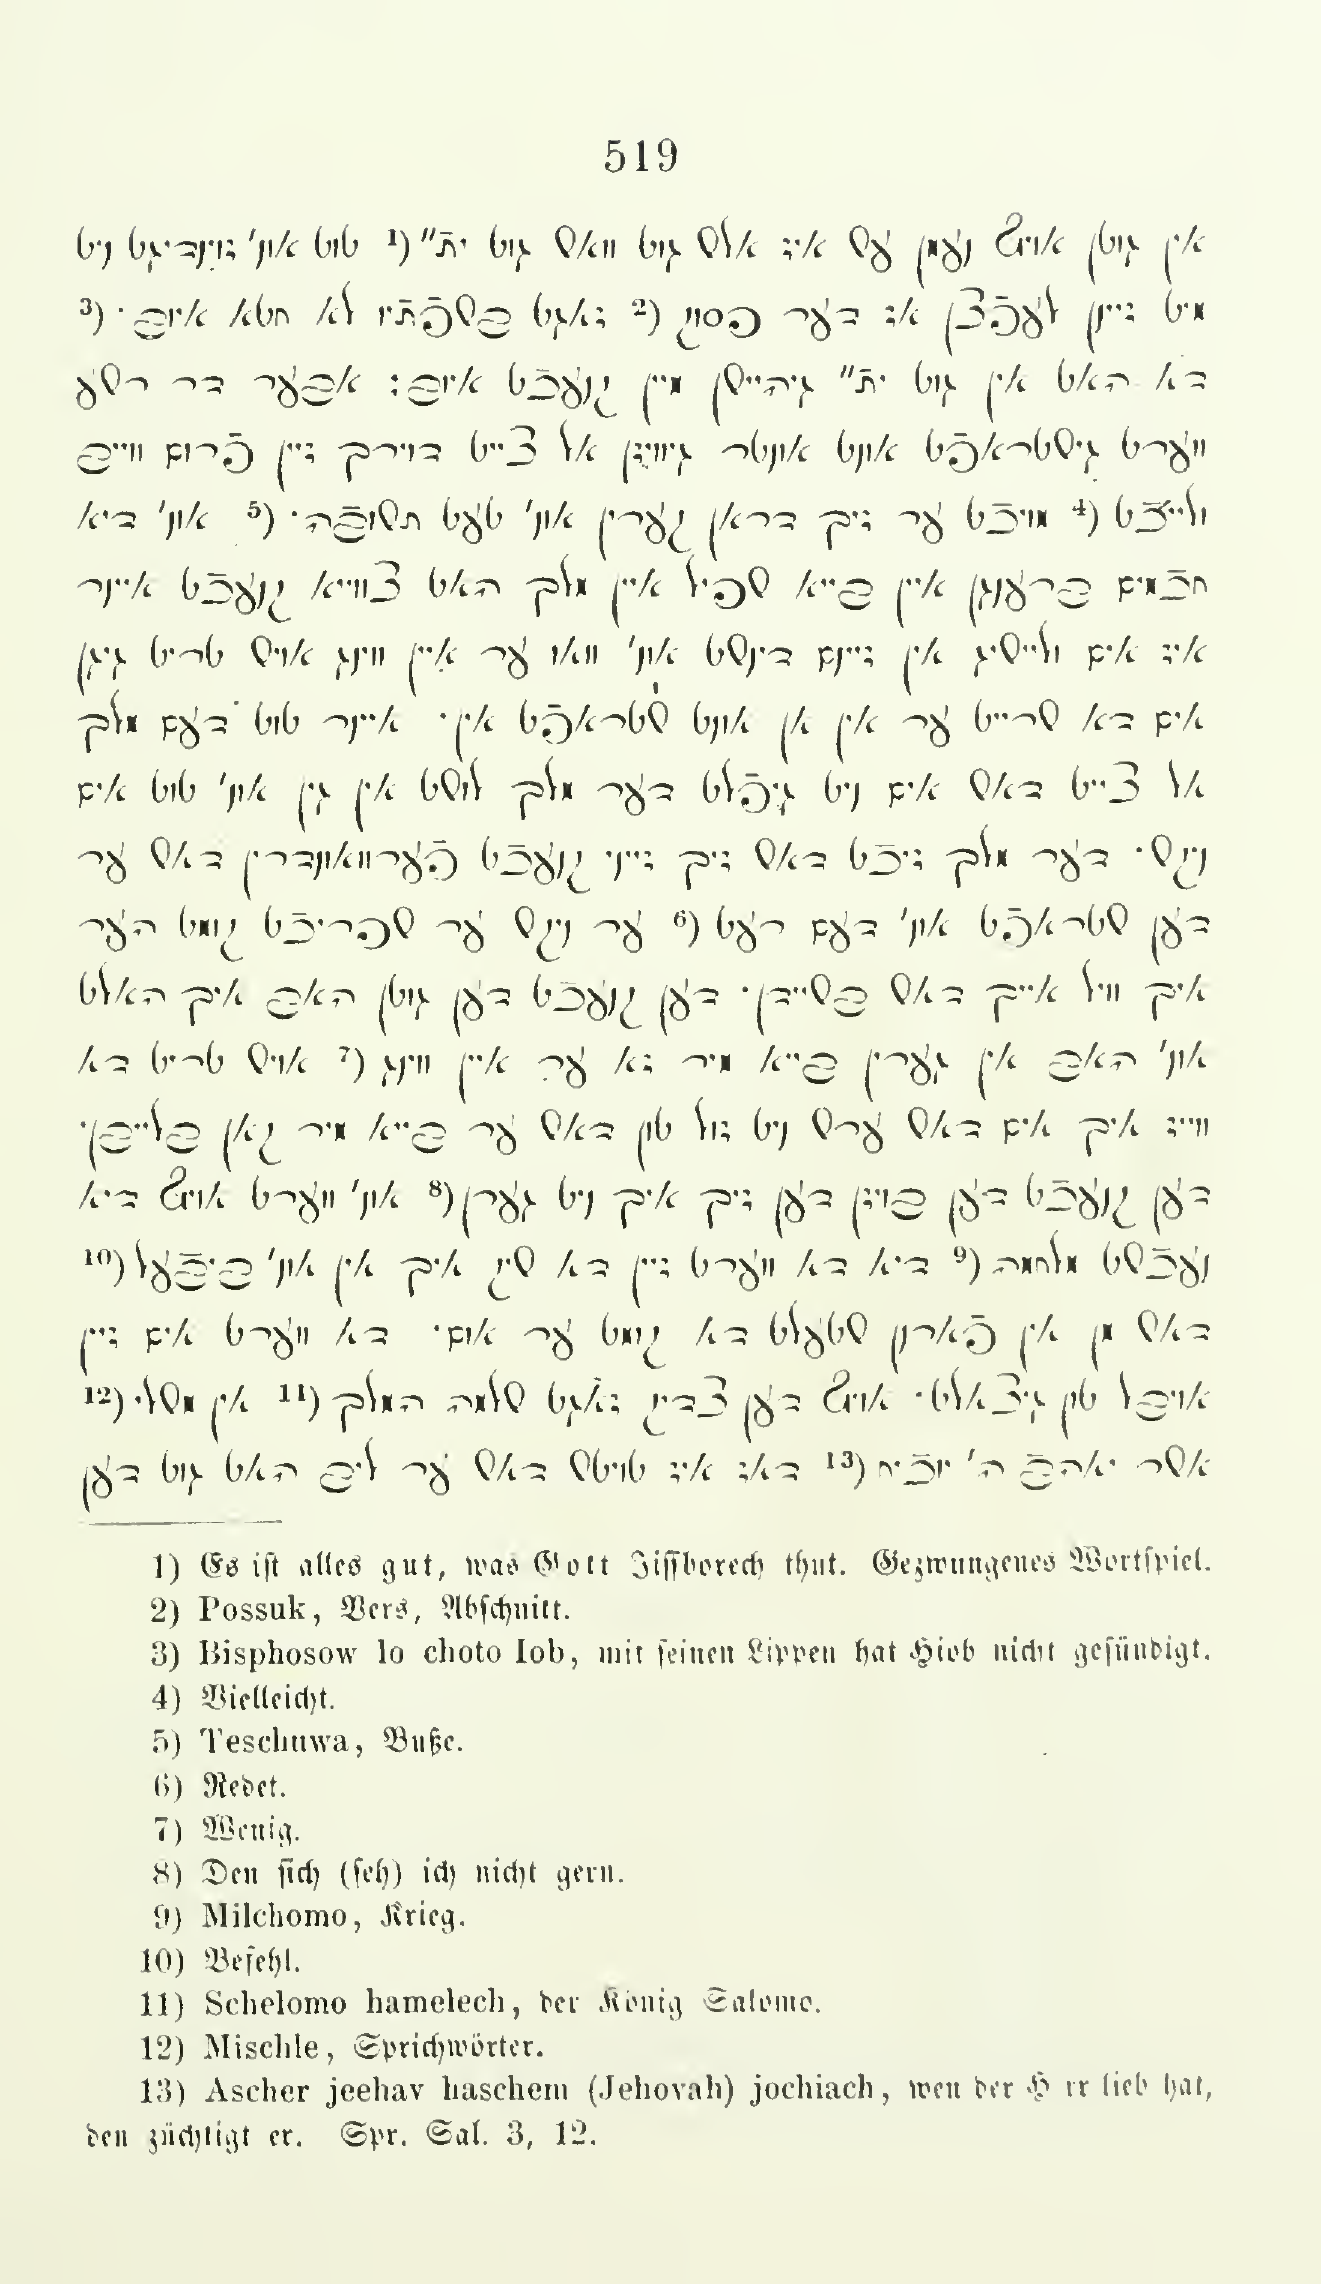 519
אין גוטן אויף נעמן עש איז אלש גוט וואש גוט ית״ (1 טוט אונ' זוינדיגט ניט
מיט זיינן לעפֿצן אז דער פסוק (2 זאגט בשפֿתֿיו לא חטא איוב · (3
דא האט אין גוט ית״ גיהיישן מיין קנעכֿט איוב : אבער דר רשע
ווערט גישטראפֿט אונט אונטר גיוויזן אל צייט דוירך זיין פֿרום ווייב
ולייכֿט (4 מויכֿט ער זיך דראן קערין אונ' טעט תשובֿה · (5 אונ' דיא
חכֿמים ברענגן איין בייא שפיל איין מלך האט צווייא קנעכֿט איינר
איז אים וליישיג אין זיינם דינשט אונ' וואו ער איין ווינג אויש טריט גיגן
אים דא שרייט ער אין אן אונט שטראפֿט אין · איינר טוט דעם מלך
אל צייט דאש אים ניט גיפֿלט דער מלך לוישט אין גין אונ' טוט אים
ניקש · דער מלך זיכֿט דאש זיך זייני קנעכֿט פֿערוואונדרין דאש ער
דען שטראפֿט אונ' דעם רעט (6 ער ניקש ער שפריכֿט קומט הער
איך וויל אייך דאש בשיידן · דען קנעכֿט דען גוטן האב איך האלט
אונ' האב אין גערין בייא מיר זא ער איין ווינג (7 אויש טריט דא
ווייז איך אים דאש ערש ניט זול טון דאש ער בייא מיר קאן בלייבן ·
דען קנעכֿט דען בויזן דען זיך איך ניט גערן (8 אונ' ווערט אויף דיא
נעכֿשט מלחמה (9 דיא דא ווערט זיין דא שיק איך אין אונ' ביפֿעל (10
דאש מן אין פֿארון שטעלט דא קומט ער אום · דא ווערט אים זיין
אויבל טון גיצאלט · אויף דען צדיק זאגט שלמה המלך (11 אין משלי · (12
אשר יאהבֿ ה' יוכֿיח (13 דאז איז טויטש דאש ער ליב האט גוט דען
1) Es ist alles gut, was Gott Jissborech thut. Gezwungenes Wortspiel.
2) Possuk, Vers, Abschnitt.
3) Bisphosow lo choto Iob, mit seinen Lippen hat Hiob nicht gesündigt.
4) Vielleicht.
5) Teschuwa, Buße.
6) Redet.
7) Wenig.
8) Den sich (seh) ich nicht gern.
9) Milchomo, Krieg.
10) Befehl.
11) Schelomo hamelech, der König Salomo.
12) Mischle, Sprichwörter.
13) Ascher jeehav haschem (Jehovah) jochiach, wen der H rr lieb hat,
den züchtigt er. Spr. Sal. 3, 12.